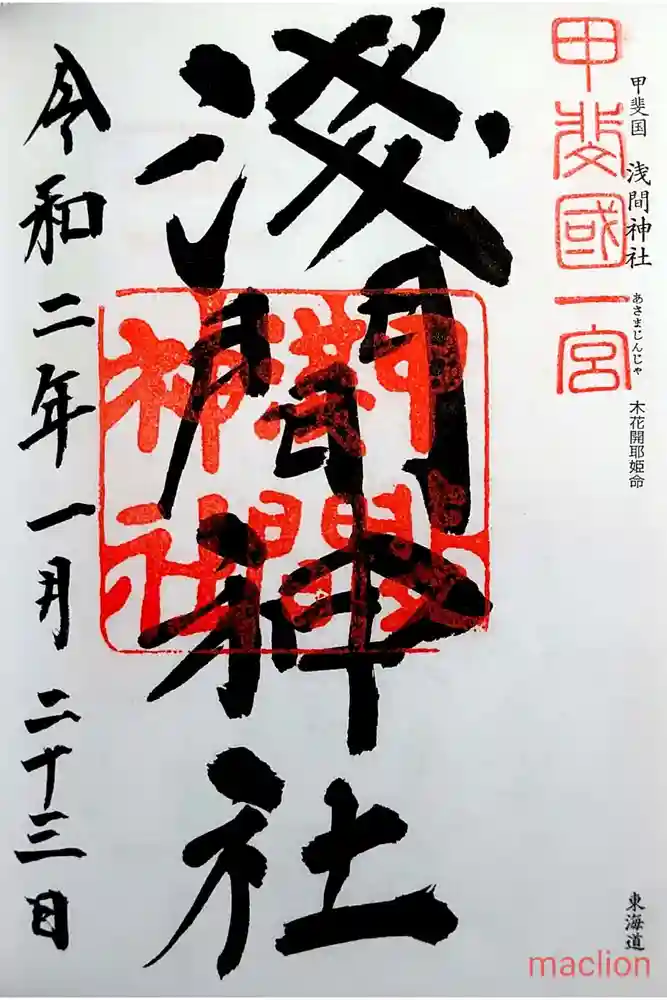 甲斐國一宮
甲斐国 浅間神社
あさまじんじゃ
木花開耶姫命
浅間神社
甲斐
浅間
神社
令和二年一月二十三日
東海道
maclion